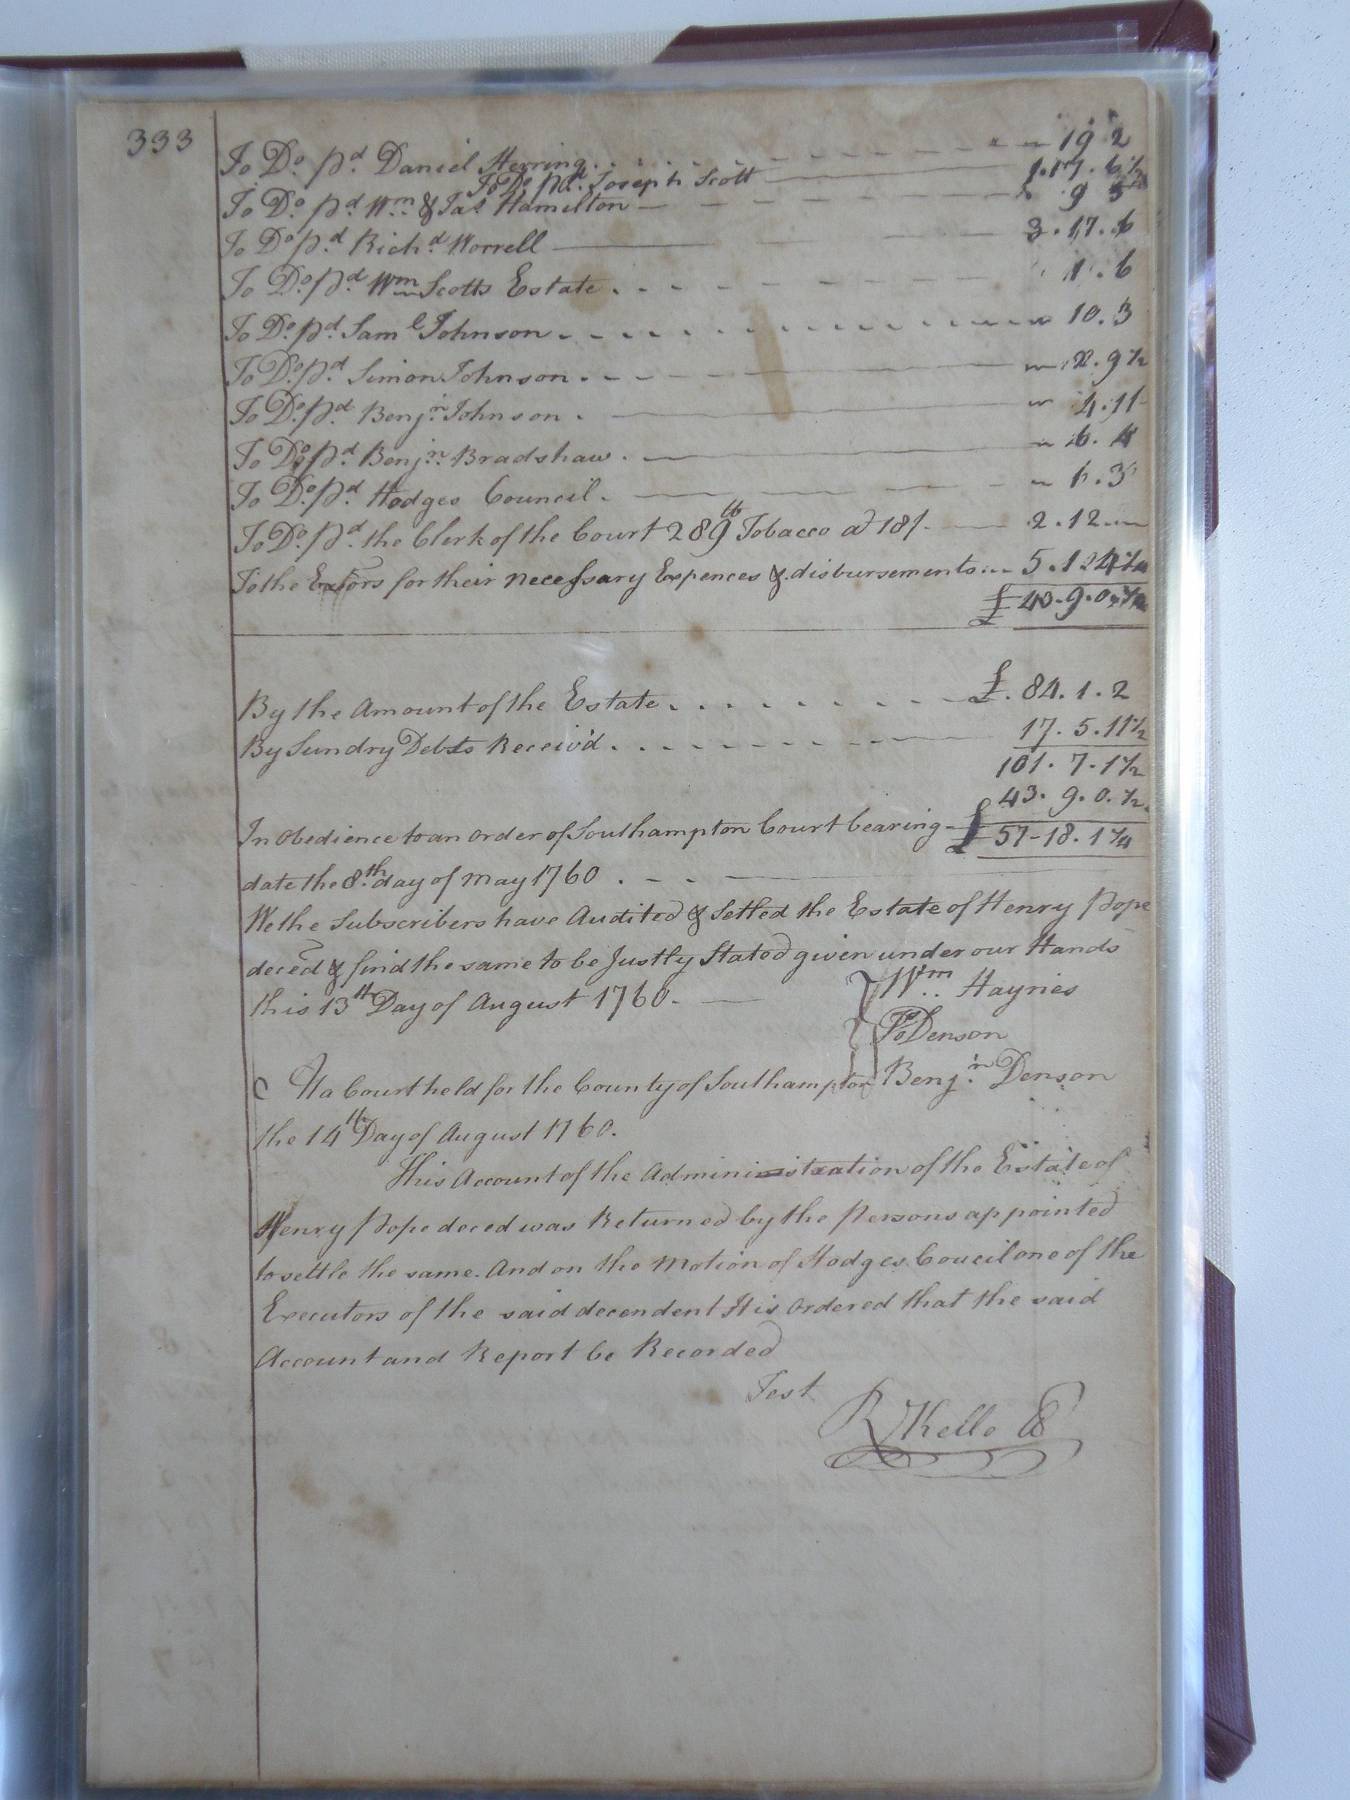 333
To Do. pd. Daniel Herring . . . . . . 19 2
To Do. pd. Joseph Scott — 1.17.6½
To Do. pd. Wm. & Jas. Hamilton — 9 3
To Do. pd. Richd. Worrell — 3.17.6
To Do. pd. Wm. Scotts Estate . . . . 1.6
To Do. pd. Saml Johnson . . . . 10.3
To Do. pd. Simon Johnson . . . 2.9½
To Do. pd. Benjn. Johnson . — 4.11
To Do. pd. Benjn. Bradshaw . — 6.4
To Do. pd. Hodges Council . — 1.3
To Do. pd. the Clerk of the Court 289lb Tobacco a 18/. — 2.12.—
To the Exctors for their necessary Expences & disbursements . . 5.1
£ 43.9.0
By the Amount of the Estate . . . . . . £. 84.1.2
By Sundry Debts Receiv'd . . . . . 17.5.11½
101.7.1½
43.9.0.½
In obedience to an order of Southampton Court bearing - £ 57-18.1¼
date the 8th. day of May 1760 . - -
We the Subscribers have Audited & Setled the Estate of Henry Pope
deced & find the same to be Justly Stated given under our Hands
this 13th Day of August 1760. —
Wm.. Haynes
Denson
Benjn. Denson
At a Court held for the County of Southampton
the 14th Day of August 1760.
This Account of the Administration of the Estate of
Henry Pope deced was Returned by the Persons appointed
to settle the same. And on the Motion of Hodges Coucil one of the
Executors of the said decendent It is ordered that the said
Account and Report be Recorded
Test
R Kello